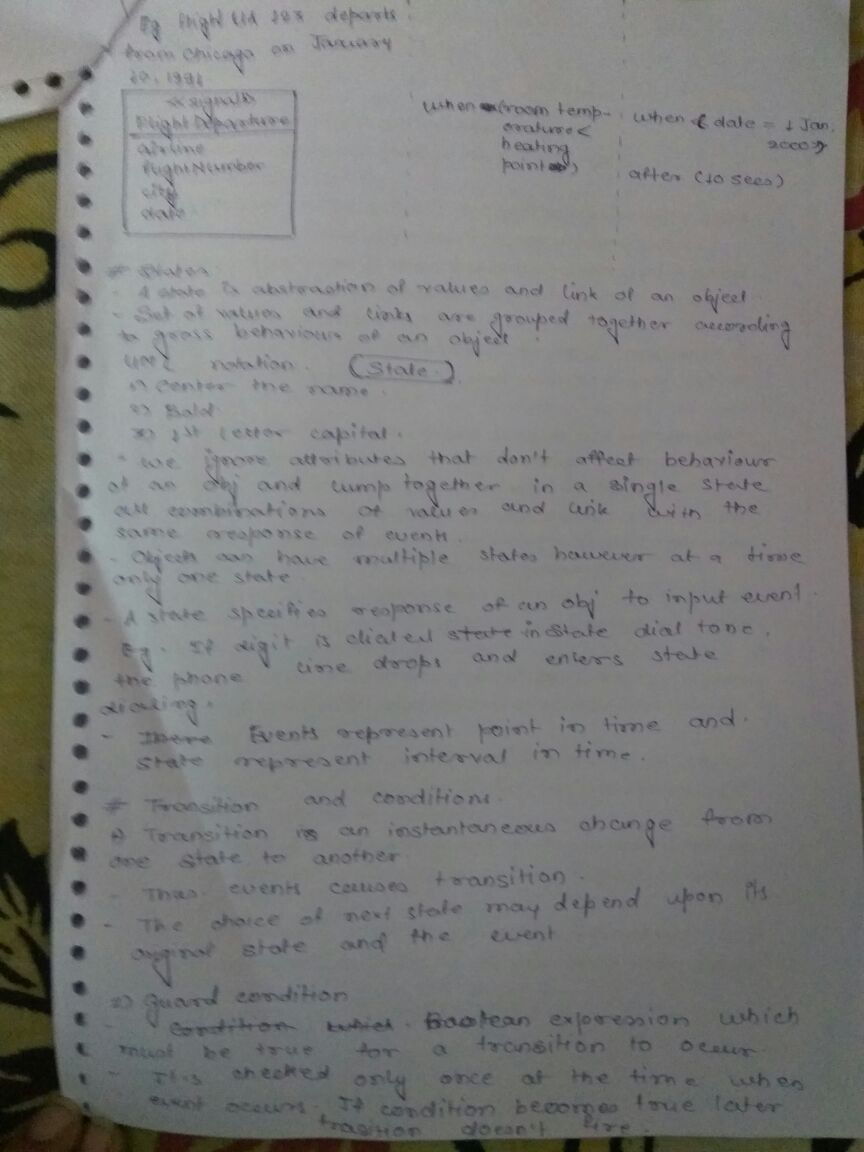 Eg Flight Ud 123 departs
from Chicago on January
10, 1991
<<signal>>
FlightDeparture
airline
flightNumber
city
date
when (room temp-
erature <
heating
point)
when ( date = 1 Jan.
2000)
after (10 secs)
# States
- A state is abstraction of values and link of an object.
- Set of values and links are grouped together according
to gross behaviour of an object.
UML notation. (State.)
1) Center the name.
2) Bold
3) 1st letter capital.
- We ignore attributes that don't affect behaviour
of an obj and lump together in a single state
all combinations of values and link with the
same response of events.
- Objects can have multiple states however at a time
only one state.
- A state specifies response of an obj to input event.
Eg. If digit is dialed state in state dial tone,
the phone line drops and enters state
dialing.
- There Events represent point in time and
state represent interval in time.
# Transition and conditions.
1) Transition is an instantaneous change from
one state to another.
- Thus events causes transition.
- The choice of next state may depend upon its
orginal state and the event
2) Guard condition
- Condition which. Boolean expression which
must be true for a transition to occur.
- It is checked only once at the time when
event occurs. If condition becomes true later
trasition doesn't fire.